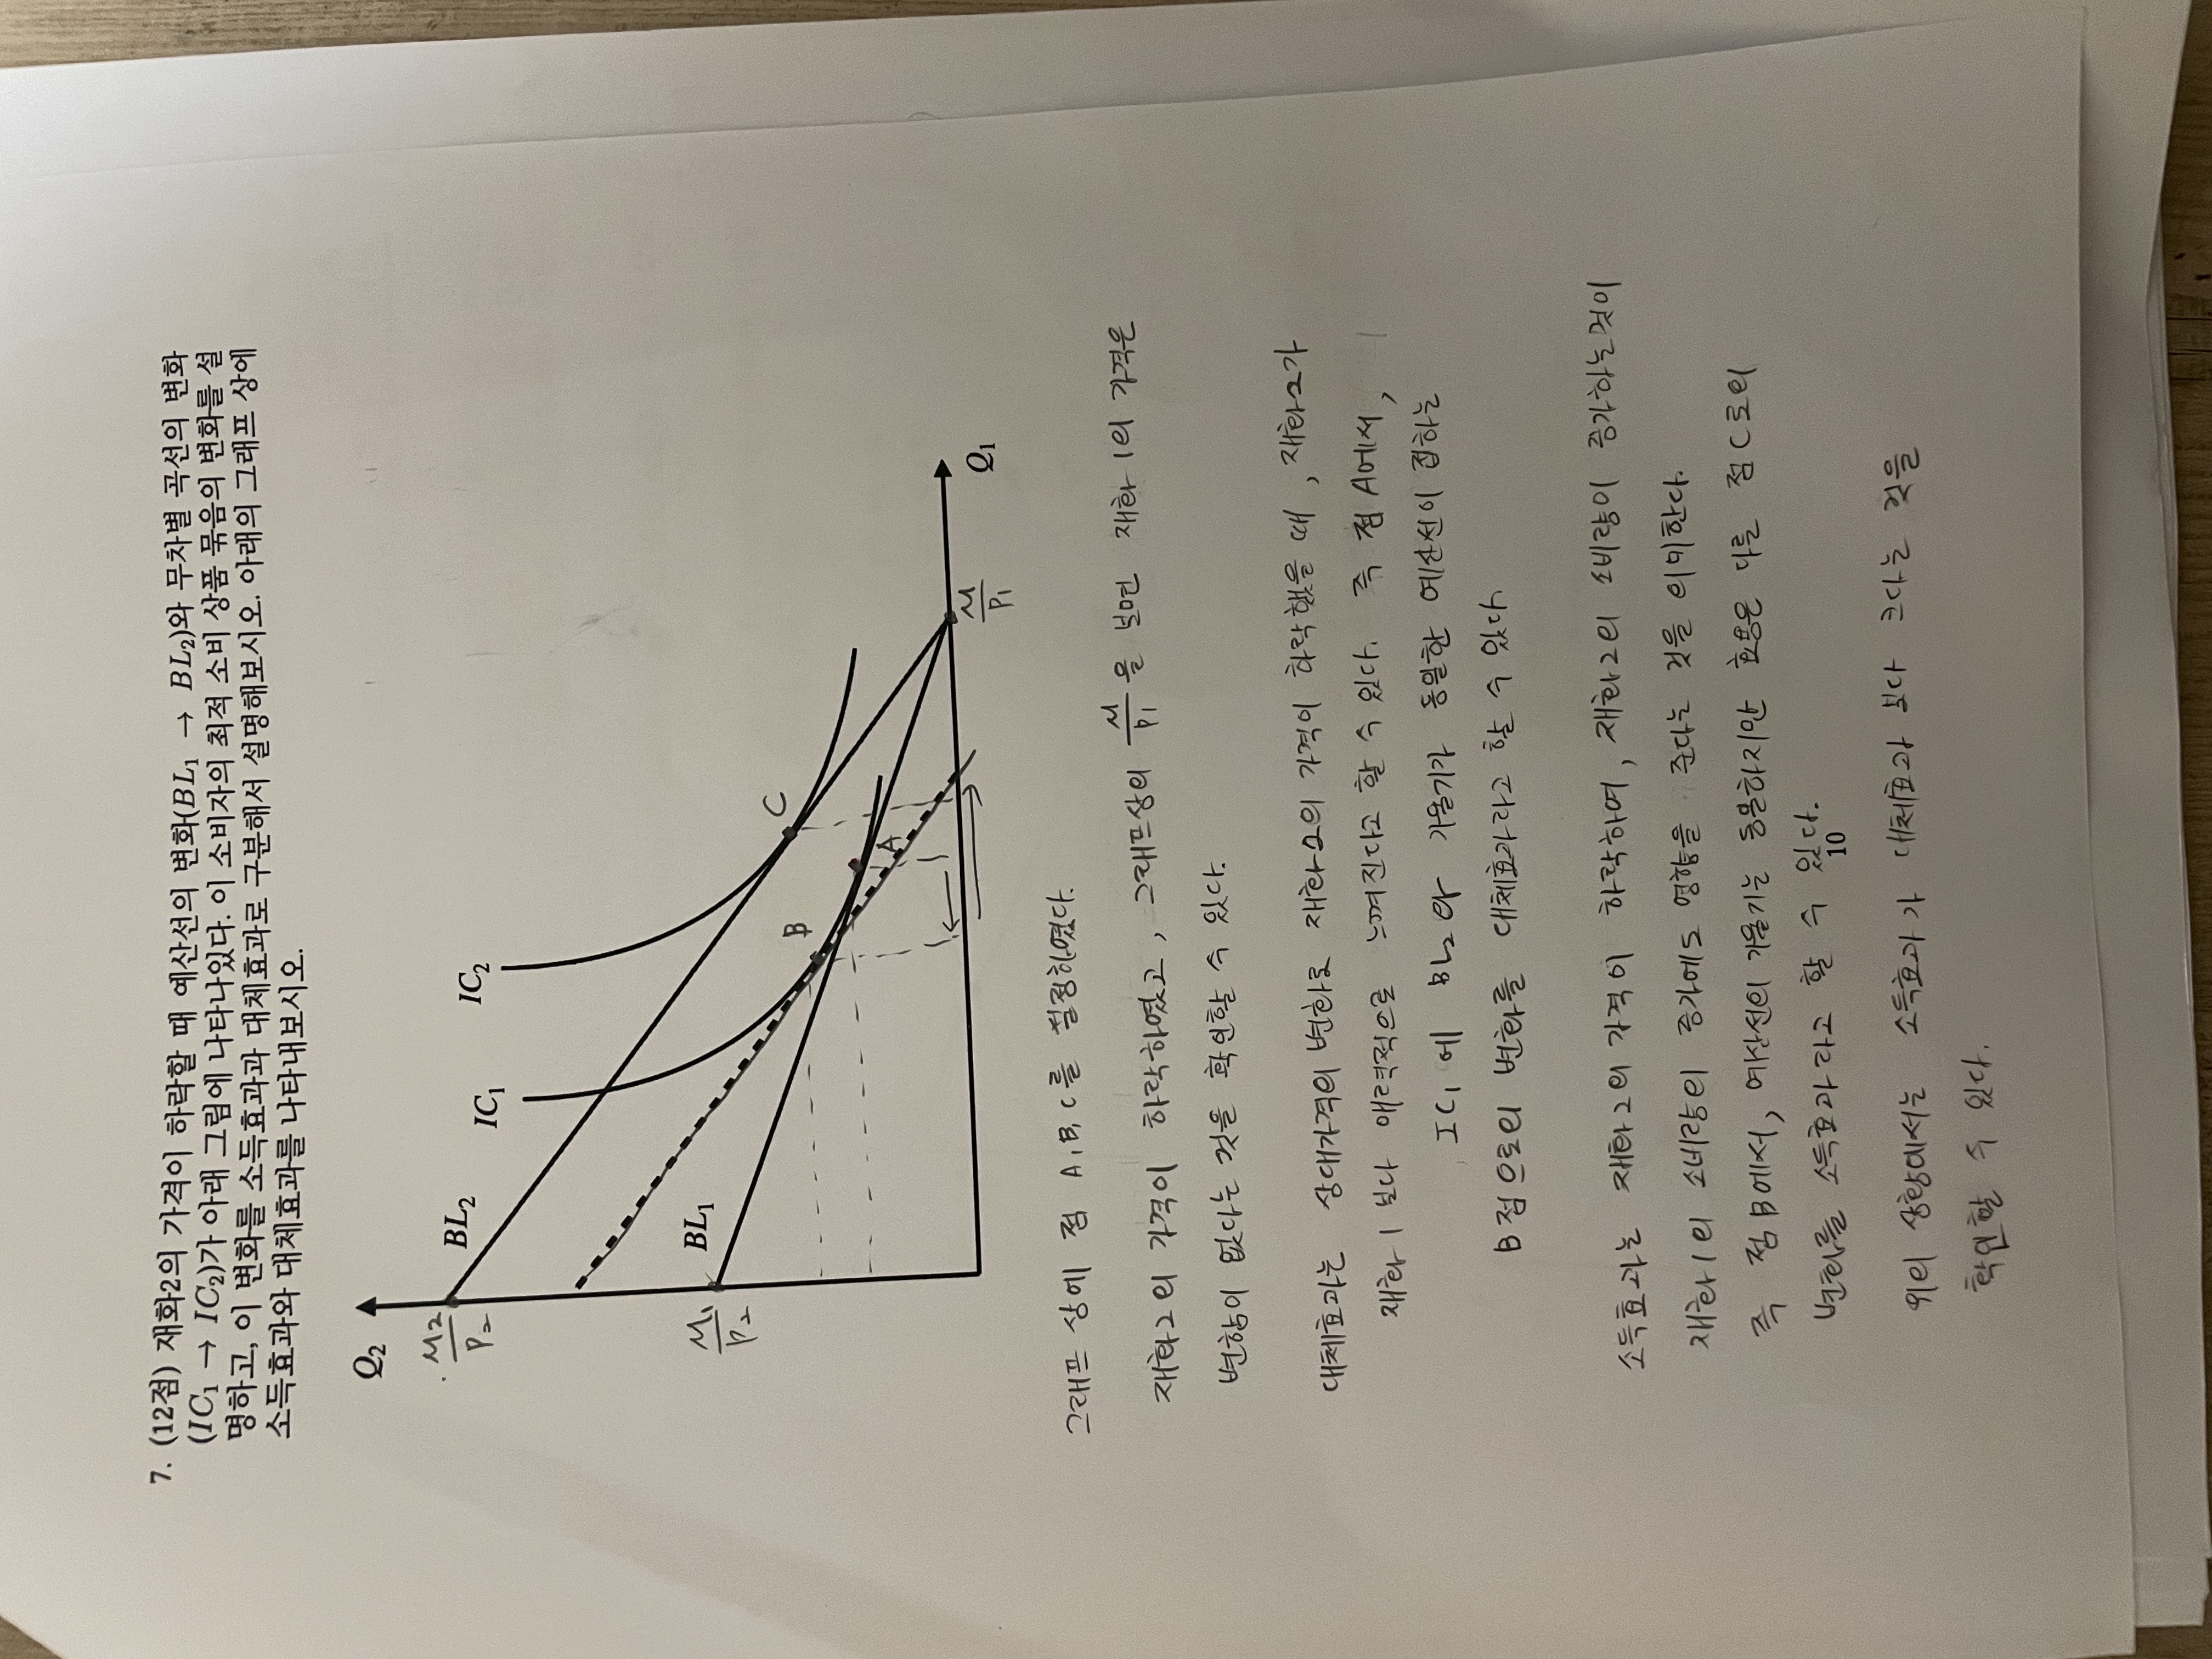 7. (12점) 재화2의 가격이 하락할 때 예산선의 변화(BL₁ → BL₂)와 무차별 곡선의 변화
(IC₁ → IC₂)가 아래 그림에 나타나있다. 이 소비자의 최적 소비 상품 묶음의 변화를 설
명하고, 이 변화를 소득효과과 대체효과로 구분해서 설명해보시오. 아래의 그래프 상에
소득효과와 대체효과를 나타내보시오.
Q₂
M₂/P₂
BL₂
IC₁
IC₂
M₁/P₂
BL₁
B
C
A
M/P₁
Q₁
그래프 상에 점 A, B, C를 설정하였다.
재화2의 가격이 하락하였고, 그래프상의 M/P₁을 보면 재화 1의 가격은
변함이 없다는 것을 확인할 수 있다.
대체효과는 상대가격의 변화로 재화2의 가격이 하락했을 때, 재화2가
재화 1 보다 매력적으로 느껴진다고 할 수 있다. 즉 점 A에서,
IC₁에 BL₂와 기울기가 동일한 예산선이 접하는
B점으로의 변화를 대체효과라고 할 수 있다.
소득효과는 재화2의 가격이 하락하여, 재화2의 소비량이 증가하는것이
재화1의 소비량의 증가에도 영향을 준다는 것을 의미한다.
즉 점 B에서, 예산선의 기울기는 동일하지만 효용은 다른 점 C로의
변화를 소득효과라고 할 수 있다.
10
위의 상황에서는 소득효과가 대체효과 보다 크다는 것을
확인할 수 있다.